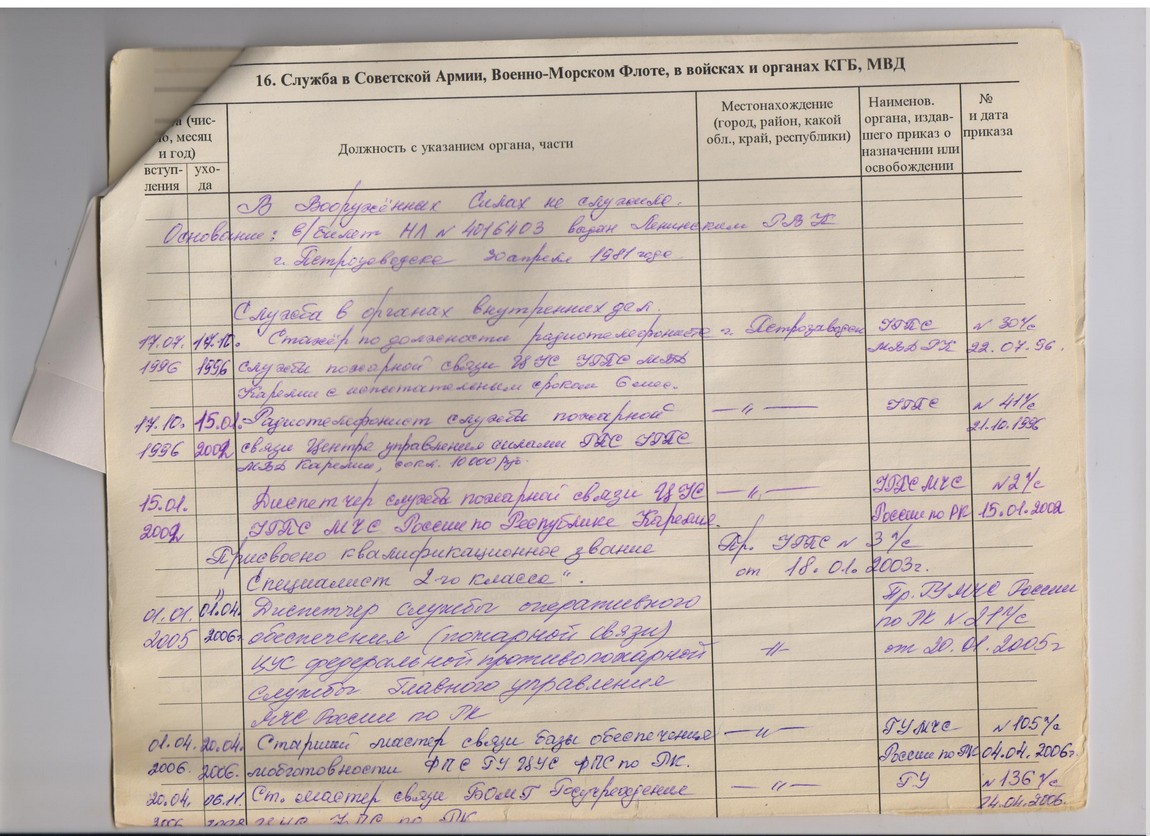 16. Служба в Советской Армии, Военно-Морском Флоте, в войсках и органах КГБ, МВД
(чис-
ло, месяц
и год)
вступ-
ления
ухо-
да
Должность с указанием органа, части
Местонахождение
(город, район, какой
обл., край, республики)
Наименов.
органа, издав-
шего приказ о
назначении или
освобождении
№
и дата
приказа
В Вооружённых Силах не служила.
Основание: в/билет НЛ № 4016403 выдан Ленинским РВК
г. Петрозаводска 30 апреля 1981 года
Служба в органах внутренних дел.
17.07. 17.10. Стажёр по должности радиотелефониста г. Петрозаводск УГПС № 30 л/с
1996 1996 службы пожарной связи ЦУС УГПС МВД МВД РК 22.07.96.
Карелии с испытательным сроком 6 мес.
17.10. 15.01. Радиотелефонист службы пожарной —„— УГПС № 41 л/с
21.10.1996
1996 2002 связи Центра управления силами ГПС УГПС
МВД Карелии, окл. 10000 руб.
15.01. Диспетчер службы пожарной связи ЦУС —„— УГПС МЧС № 2 л/с
2002 УГПС МЧС России по Республике Карелия. России по РК 15.01.2002
Присвоено квалификационное звание Пр. УГПС № 3 л/с
„Специалист 2-го класса“. от 18.01.2003г.
01.01. 01.04. Диспетчер службы оперативного Пр. ГУ МЧС России
2005 2006г обеспечения (пожарной связи) по РК № 21 л/с
ЦУС федеральной противопожарной —„— от 20.01.2005г
службы Главного управления
МЧС России по РК
01.04. 20.04. Старший мастер связи базы обеспечения —„— ГУ МЧС № 105 л/с
2006. 2006. мобготовности ФПС ГУ ЦУС ФПС по РК. России по РК 04.04.2006г.
20.04. 06.11. Ст. мастер связи БОМГ Госучреждение —„— ГУ № 136 л/с
24.04.2006.
2006 ФПС по РК